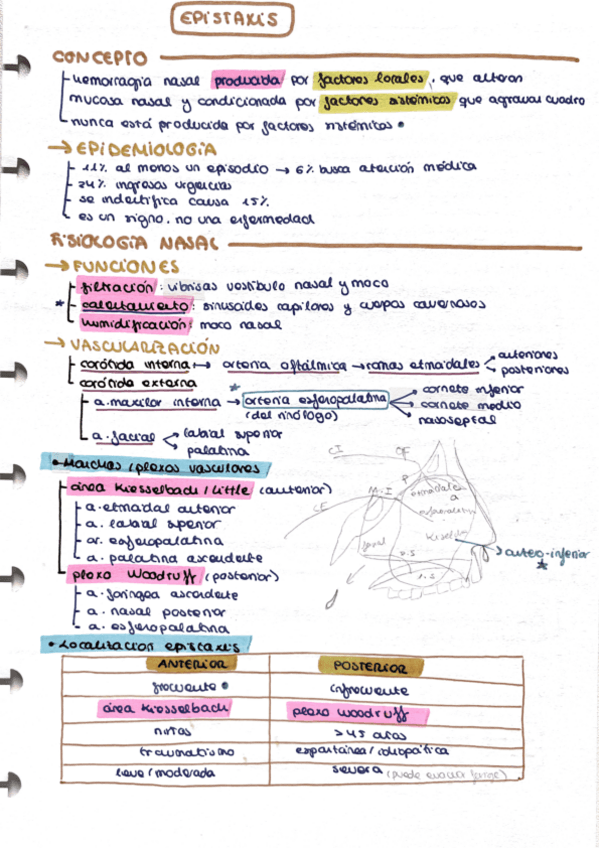 EPISTAXIS
CONCEPTO
hemorragia nasal producida por factores locales, que alteran
mucosa nasal y condicionada por factores sistémicos que agravan cuadro
nunca está producida por factores sistémicos
→ EPIDEMIOLOGÍA
11% al menos un episodio → 6% busca atención médica
24% ingresos urgencias
se indetifica causa 15%
es un signo, no una enfermedad
FISIOLOGÍA NASAL
→ FUNCIONES
filtración: vibrisas vestíbulo nasal y moco
* calentamiento: sinusoides capilares y cuerpos cavernosos
humidificación: moco nasal
→ VASCULARIZACIÓN
carótida interna → arteria oftálmica → ramas etmoidales
anteriores
posteriores
carótida externa
*
a. maxilar interna → arteria esfenopalatina
(del rinólogo)
cornete inferior
cornete medio
nasoseptal
a. facial
labial superior
palatina
• Manchas / plexos vasculares
área Kiesselbach / Little (anterior)
a. etmoidal anterior
a. labial superior
ar. esfenopalatina
a. palatina ascendente
plexo Woodruff (posterior)
a. faríngea ascendente
a. nasal posterior
a. esfenopalatina
CI
CF
M.I
CE
etmoidales
a
facial
Kisselba
→ antero-inferior
*
• Localización epistaxis
ANTERIOR POSTERIOR
frecuente infrecuente
área Kiesselbach plexo Woodruff
niños >45 años
traumatismo espontánea / idiopática
leve / moderada severa